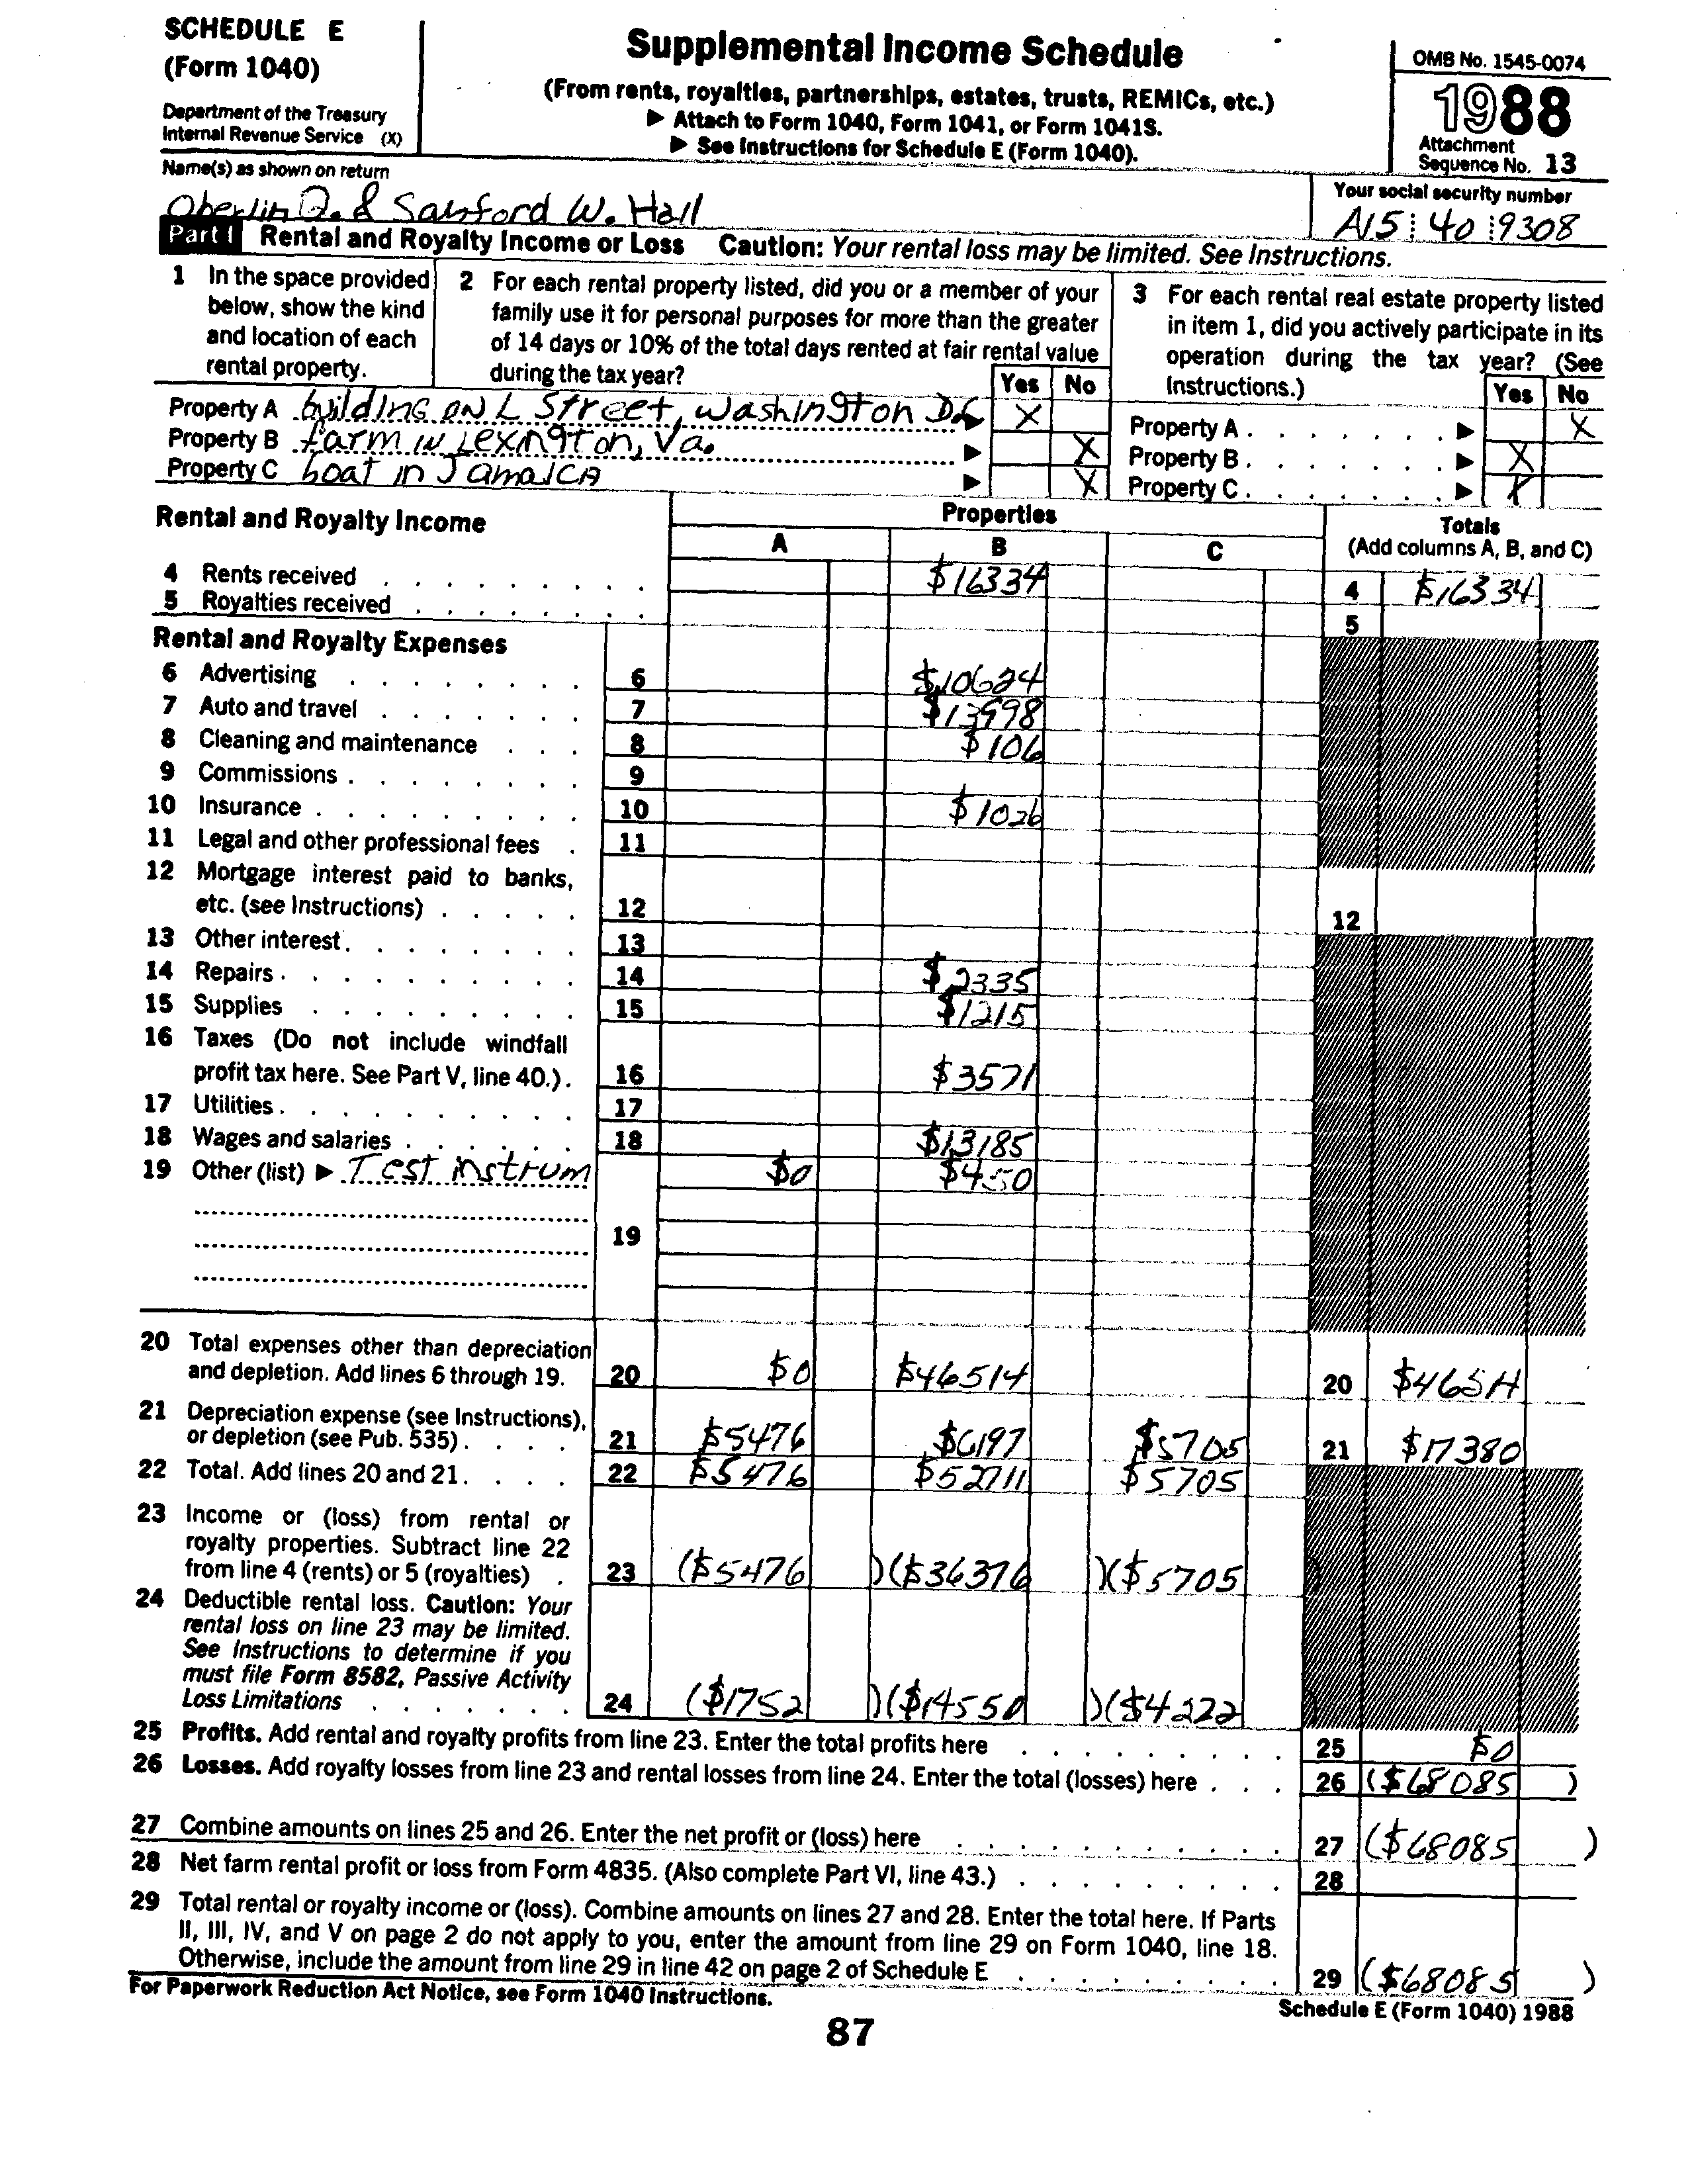 SCHEDULE E
(Form 1040)
Department of the Treasury
Internal Revenue Service (X)
Supplemental Income Schedule
(From rents, royalties, partnerships, estates, trusts, REMICs, etc.)
▶ Attach to Form 1040, Form 1041, or Form 1041S.
▶ See Instructions for Schedule E (Form 1040).
OMB No. 1545-0074
1988
Attachment
Sequence No. 13
Name(s) as shown on return
Oberlin Q. & Sanford W. Hall
Your social security number
A15 40 9308
Part I Rental and Royalty Income or Loss Caution: Your rental loss may be limited. See Instructions.
1 In the space provided below, show the kind and location of each rental property.
2 For each rental property listed, did you or a member of your family use it for personal purposes for more than the greater of 14 days or 10% of the total days rented at fair rental value during the tax year?
3 For each rental real estate property listed in item 1, did you actively participate in its operation during the tax year? (See Instructions.)
Yes No
Yes No
Property A building on L Street, Washington D.C X
Property A . . . . . . . ▶ X
Property B farm in Lexington, Va. ▶ X
Property B . . . . . . . ▶ X
Property C boat in Jamaica ▶ X
Property C . . . . . . . ▶ X
Rental and Royalty Income
Properties
Totals
(Add columns A, B, and C)
A B C
4 Rents received $16334 4 $16334
5 Royalties received 5
Rental and Royalty Expenses
6 Advertising 6 $10624
7 Auto and travel 7 $13998
8 Cleaning and maintenance 8 $106
9 Commissions 9
10 Insurance 10 $1026
11 Legal and other professional fees 11
12 Mortgage interest paid to banks,
etc. (see Instructions) 12 12
13 Other interest 13
14 Repairs 14 $2335
15 Supplies 15 $1215
16 Taxes (Do not include windfall
profit tax here. See Part V, line 40.) 16 $3571
17 Utilities 17
18 Wages and salaries 18 $13185
19 Other (list) ▶ Test instrum $0 $450
19
20 Total expenses other than depreciation
and depletion. Add lines 6 through 19. 20 $0 $46514 20 $46514
21 Depreciation expense (see Instructions),
or depletion (see Pub. 535) 21 $5476 $6197 $5705 21 $17380
22 Total. Add lines 20 and 21 22 $5476 $52711 $5705
23 Income or (loss) from rental or
royalty properties. Subtract line 22
from line 4 (rents) or 5 (royalties) 23 ($5476 ) ($36376 ) ($5705 )
24 Deductible rental loss. Caution: Your
rental loss on line 23 may be limited.
See Instructions to determine if you
must file Form 8582, Passive Activity
Loss Limitations 24 ($1752 ) ($14550 ) ($4222 )
25 Profits. Add rental and royalty profits from line 23. Enter the total profits here 25 $0
26 Losses. Add royalty losses from line 23 and rental losses from line 24. Enter the total (losses) here 26 ($68085 )
27 Combine amounts on lines 25 and 26. Enter the net profit or (loss) here 27 ($68085 )
28 Net farm rental profit or loss from Form 4835. (Also complete Part VI, line 43.) 28
29 Total rental or royalty income or (loss). Combine amounts on lines 27 and 28. Enter the total here. If Parts
II, III, IV, and V on page 2 do not apply to you, enter the amount from line 29 on Form 1040, line 18.
Otherwise, include the amount from line 29 in line 42 on page 2 of Schedule E 29 ($68085 )
For Paperwork Reduction Act Notice, see Form 1040 Instructions.
Schedule E (Form 1040) 1988
87